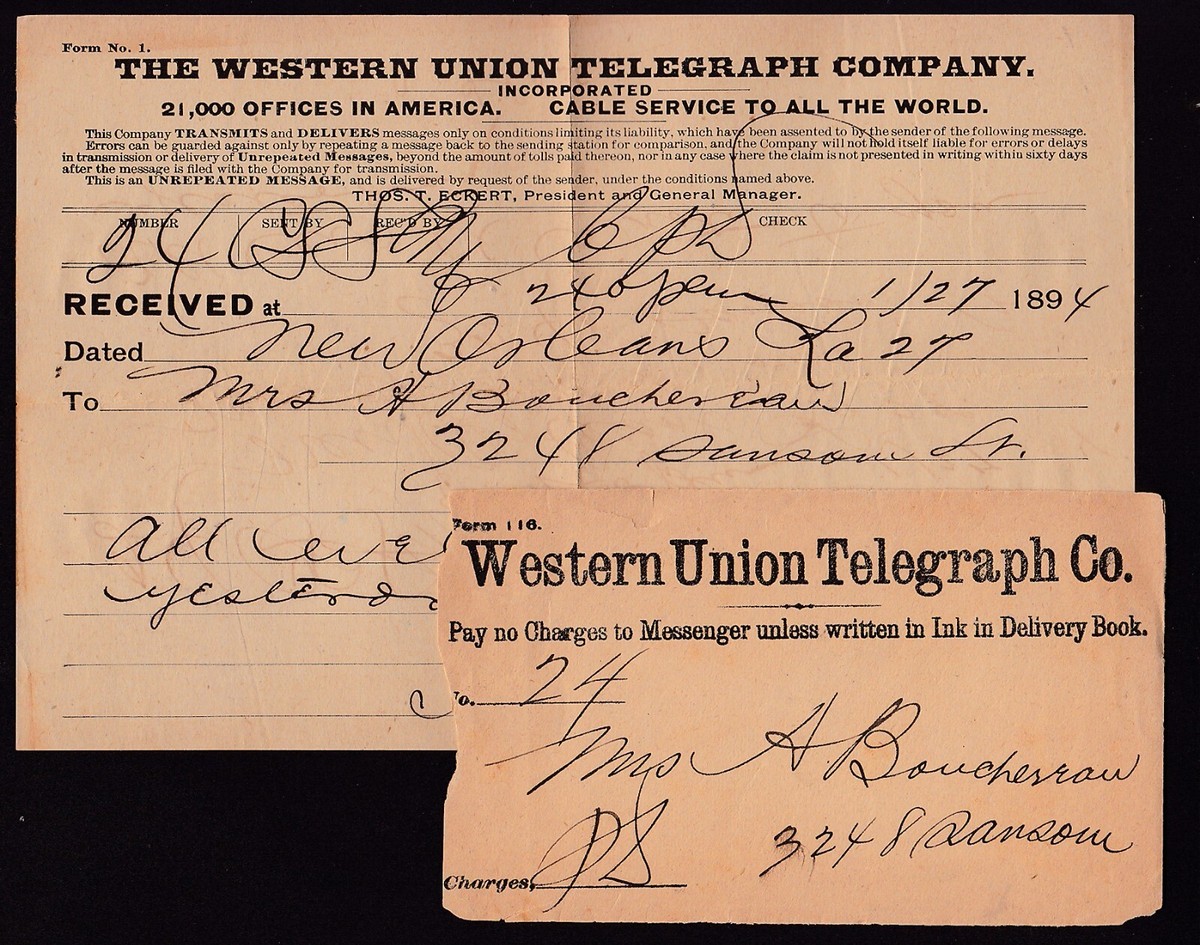 Form No. 1.
THE WESTERN UNION TELEGRAPH COMPANY.
INCORPORATED
21,000 OFFICES IN AMERICA. CABLE SERVICE TO ALL THE WORLD.
This Company TRANSMITS and DELIVERS messages only on conditions limiting its liability, which have been assented to by the sender of the following message.
Errors can be guarded against only by repeating a message back to the sending station for comparison, and the Company will not hold itself liable for errors or delays
in transmission or delivery of Unrepeated Messages, beyond the amount of tolls paid thereon, nor in any case where the claim is not presented in writing within sixty days
after the message is filed with the Company for transmission.
This is an UNREPEATED MESSAGE, and is delivered by request of the sender, under the conditions named above.
THOS. T. ECKERT, President and General Manager.
NUMBER SENT BY REC'D BY CHECK
24
RECEIVED at 240 pm 1/27 1894
Dated New Orleans La 27
To Mrs A Bouchereau
3248 Sansom St.
All
Form 116.
Western Union Telegraph Co.
Pay no Charges to Messenger unless written in Ink in Delivery Book.
No. 24
Mrs A Bouchereau
3248 Sansom
Charges,